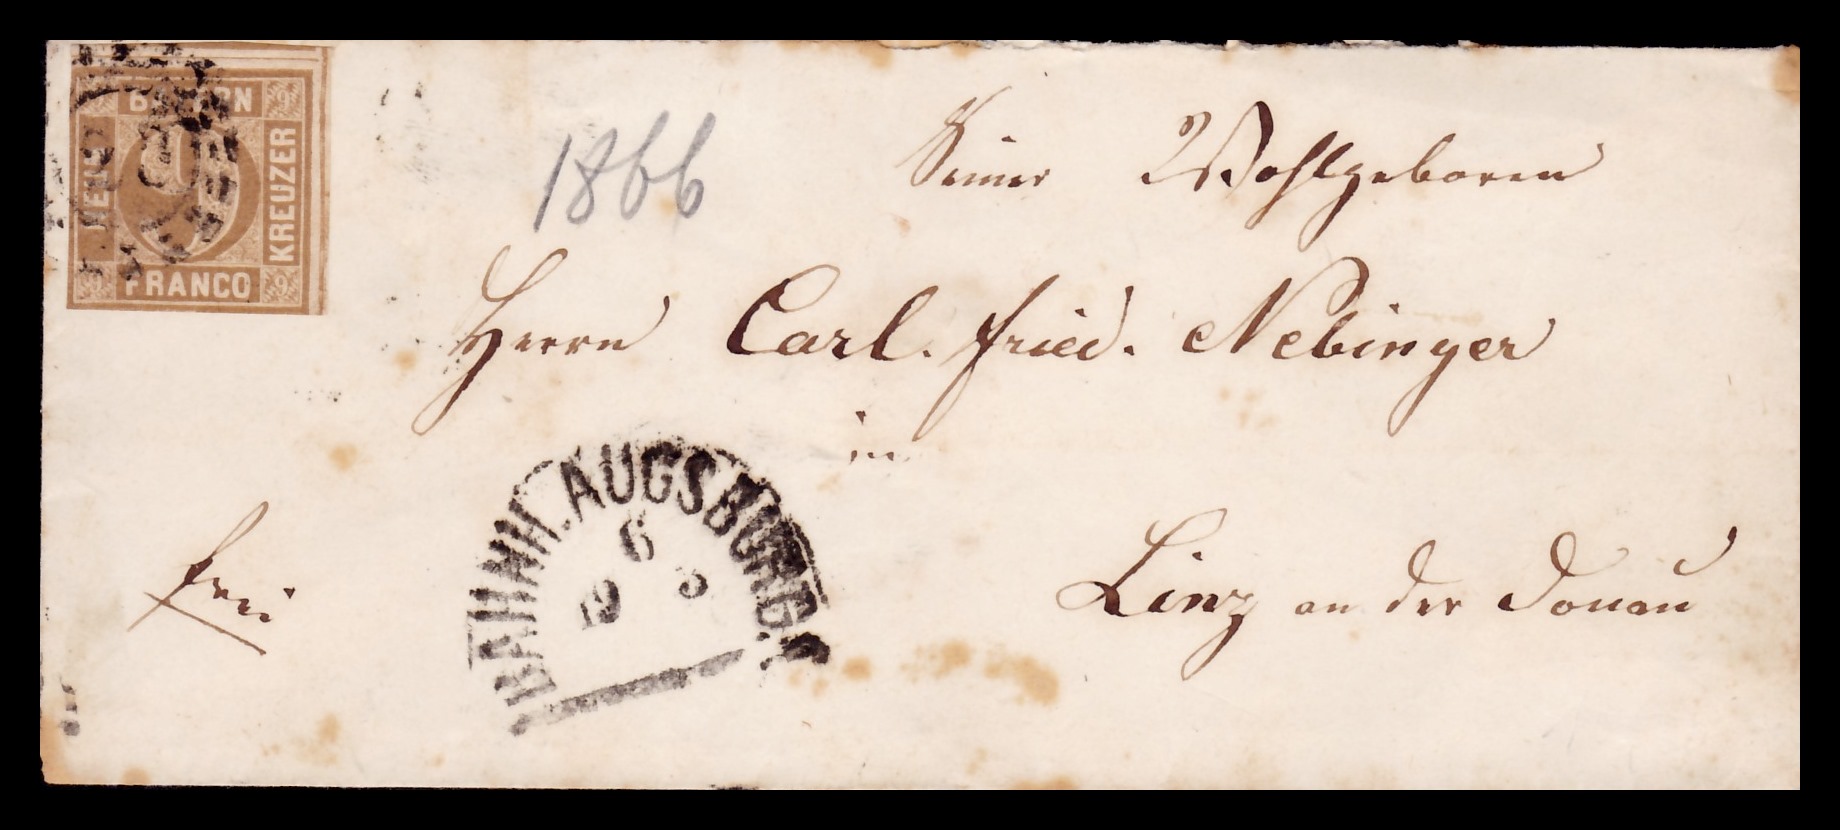 BAYERN
NEUN
KREUZER
FRANCO
9 9 9 9
1866
Seiner Wohlgeboren
Herrn Carl. Fried. Nebinger
in
Linz an der Donau
frei
BAHNH. AUGSBURG.
6
19 3